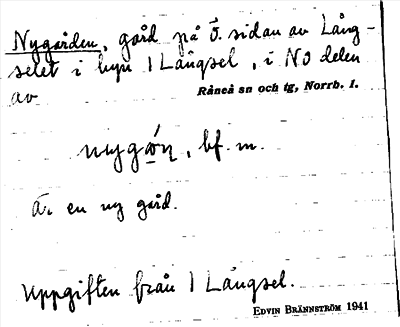 Nygården, gård på ö. sidan av Lång-
selet i byn 1 Långsel, i NO delen
av
Råneå sn och tg, Norrb. l.
nygǫ́ɳ, bf. m.
Är en ny gård.
Uppgiften från 1 Långsel.
EDVIN BRÄNNSTRÖM 1941